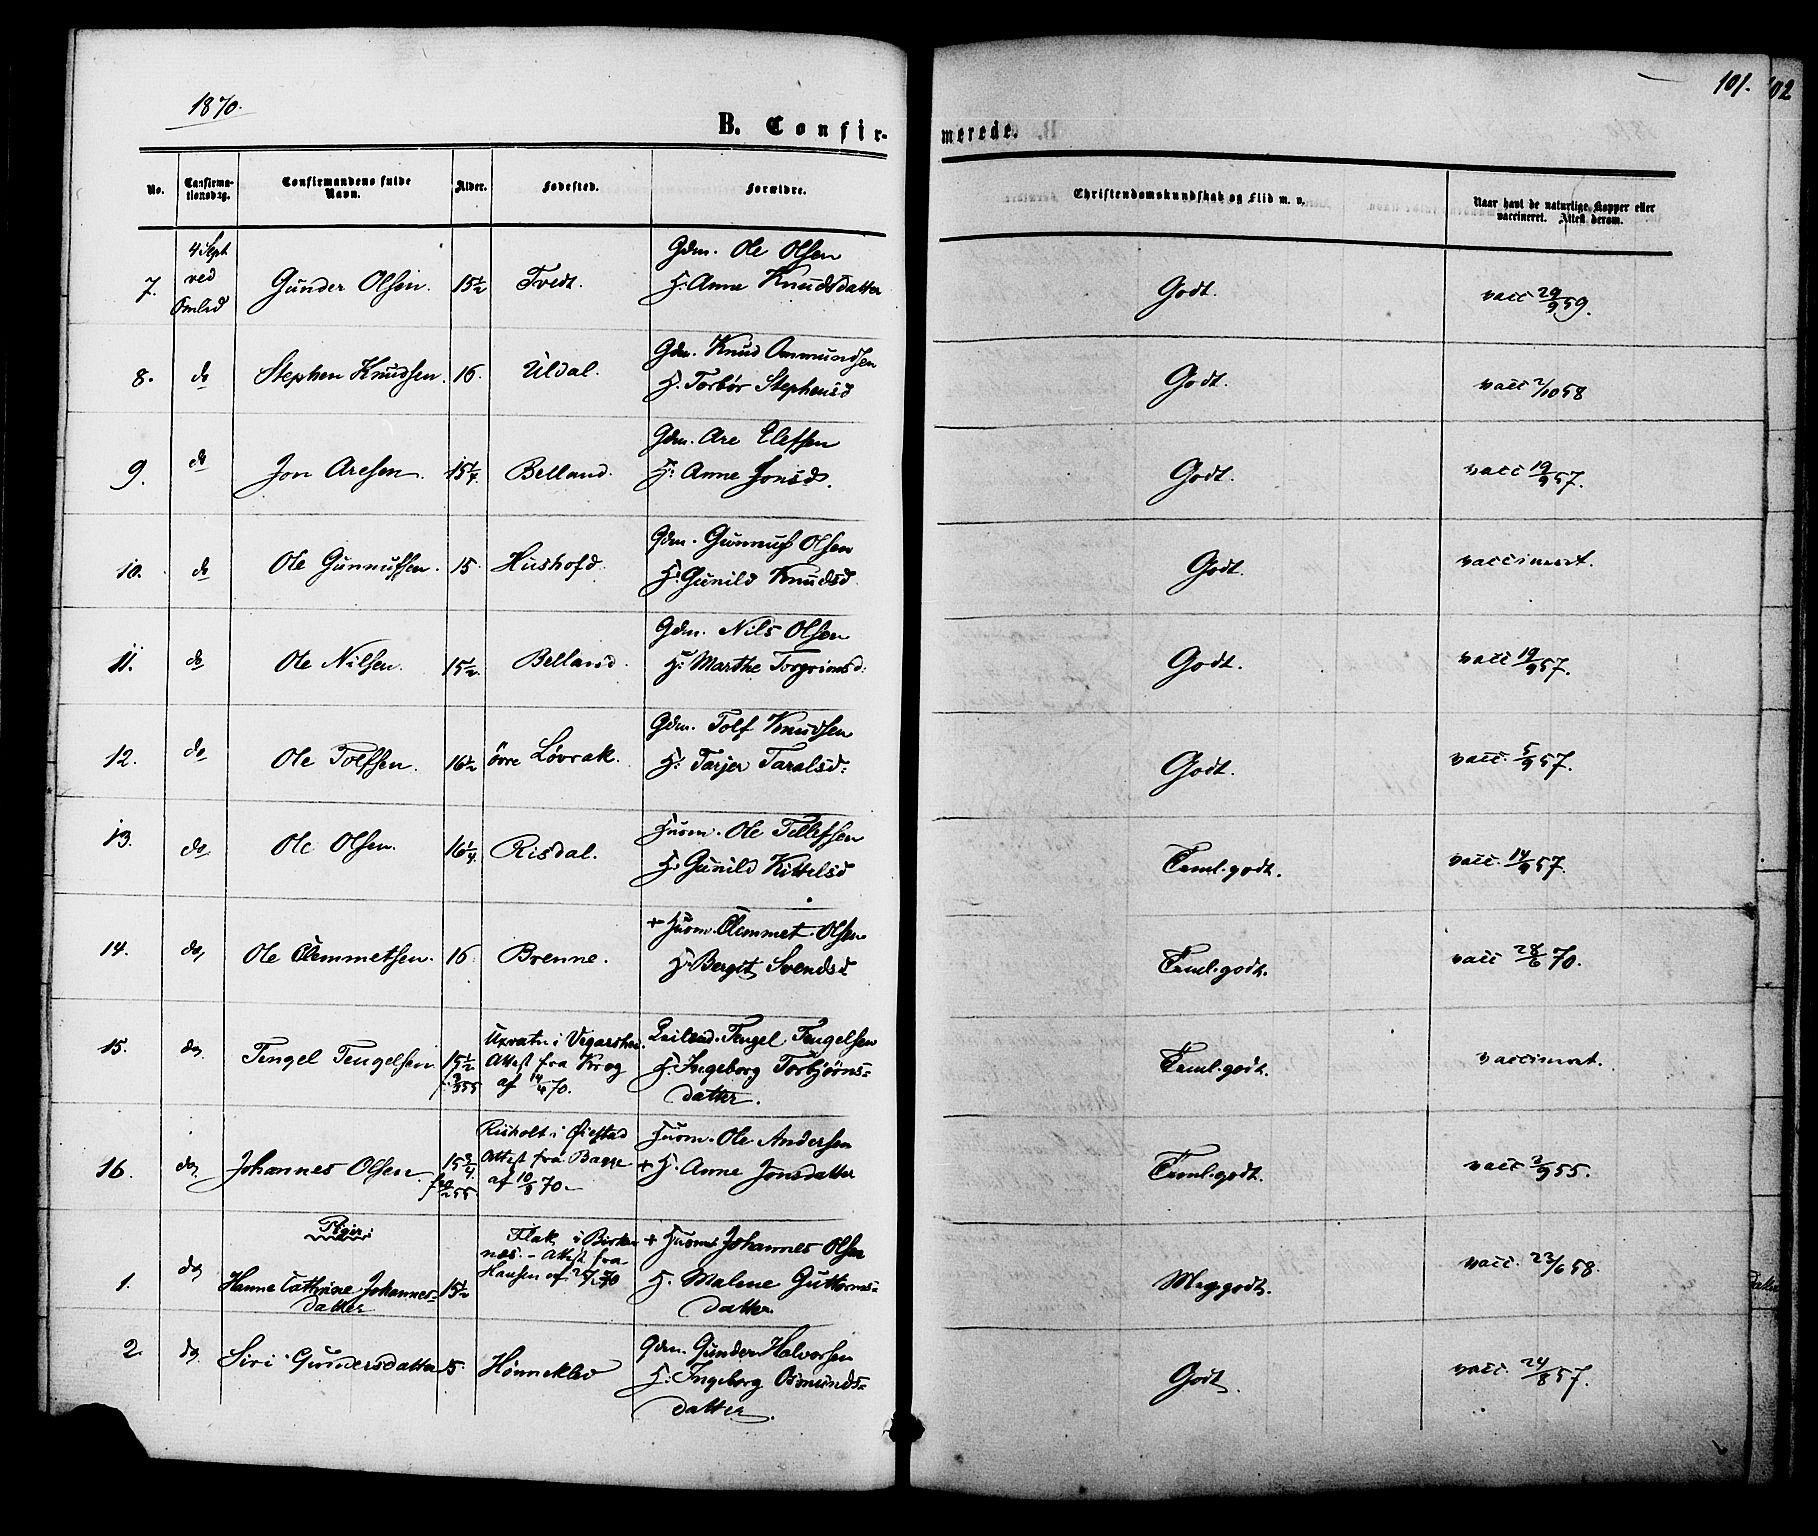 1870.
101.
102
B. Confir-
merede.
No.
Confirma-
tionsdag.
Confirmandens fulde
Navn.
Alder.
Fødested.
Forældre.
Christendomskundskab og Flid m. v.
Naar havt de naturlige Kopper eller
vaccineret. Attest derom.
7. 4 Sept ved Omlid Gunder Olsen. 15½ Tvedt. Gdm. Ole Olsen
H. Anne Knudsdatter Godt. vacc 29/9 59.
8. do Stephen Knudsen. 16. Uldal. Gdm. Knud Ommundsen
H. Torbør Stephensd Godt. vacc 2/10 58
9. do Jon Aresen. 15¼ Belland. Gdm. Are Elefsen
H. Anne Jonsd. Godt. vacc 19/9 57.
10. do Ole Gunnufsen. 15. Hushofd. Gdm. Gunnuf Olsen
H. Gunild Knudsd. Godt. vaccineret.
11. do Ole Nilsen. 15½ Belland. Gdm. Nils Olsen
H. Marthe Torgrimsd. Godt. vacc 19/9 57.
12. do Ole Tolfsen. 16½ övre Løvrak. Gdm. Tolf Knudsen
H. Tarjer Taralsd. Godt. vacc. 5/9 57.
13. do Ole Olsen. 16¼ Risdal. Huusm. Ole Tellefsen
H. Gunild Kittelsd Teml. godt. vacc. 14/9 57.
14. do Ole Clemmetsen. 16 Brenne. + Huusm. Clemmet Olsen
H. Bergit Svendsd Teml. godt. vacc 28/6 70.
15. do Tengel Tengelsen 15½ Uxvatn i Vegarshei. Leilænd. Tengel Tengelsen
Attest fra Krog H. Ingeborg Torbjørns-
af 14/4 70. datter. Teml. godt. vaccineret.
16. do Johannes Olsen 15¾ Risholt i Øiestad Huusm. Ole Andersen
Attest fra Bagge + H. Anne Jonsdatter
af 10/8 70. Teml. godt. vacc 3/9 55.
Piger:
1. do Hanne Cathrine Johannes-
datter 15½ Flak i Birke-
næs. - Attest fra
Hansen af 70 + Huusm Johannes Olsen
H. Malene Guttorms-
datter Meg. godt. vacc. 23/6 58.
2. do Siri Gundersdatter 15. Hønneklev Gdm. Gunder Halvorsen
H. Ingeborg Osmunds-
datter. Godt. vacc. 24/8 57.